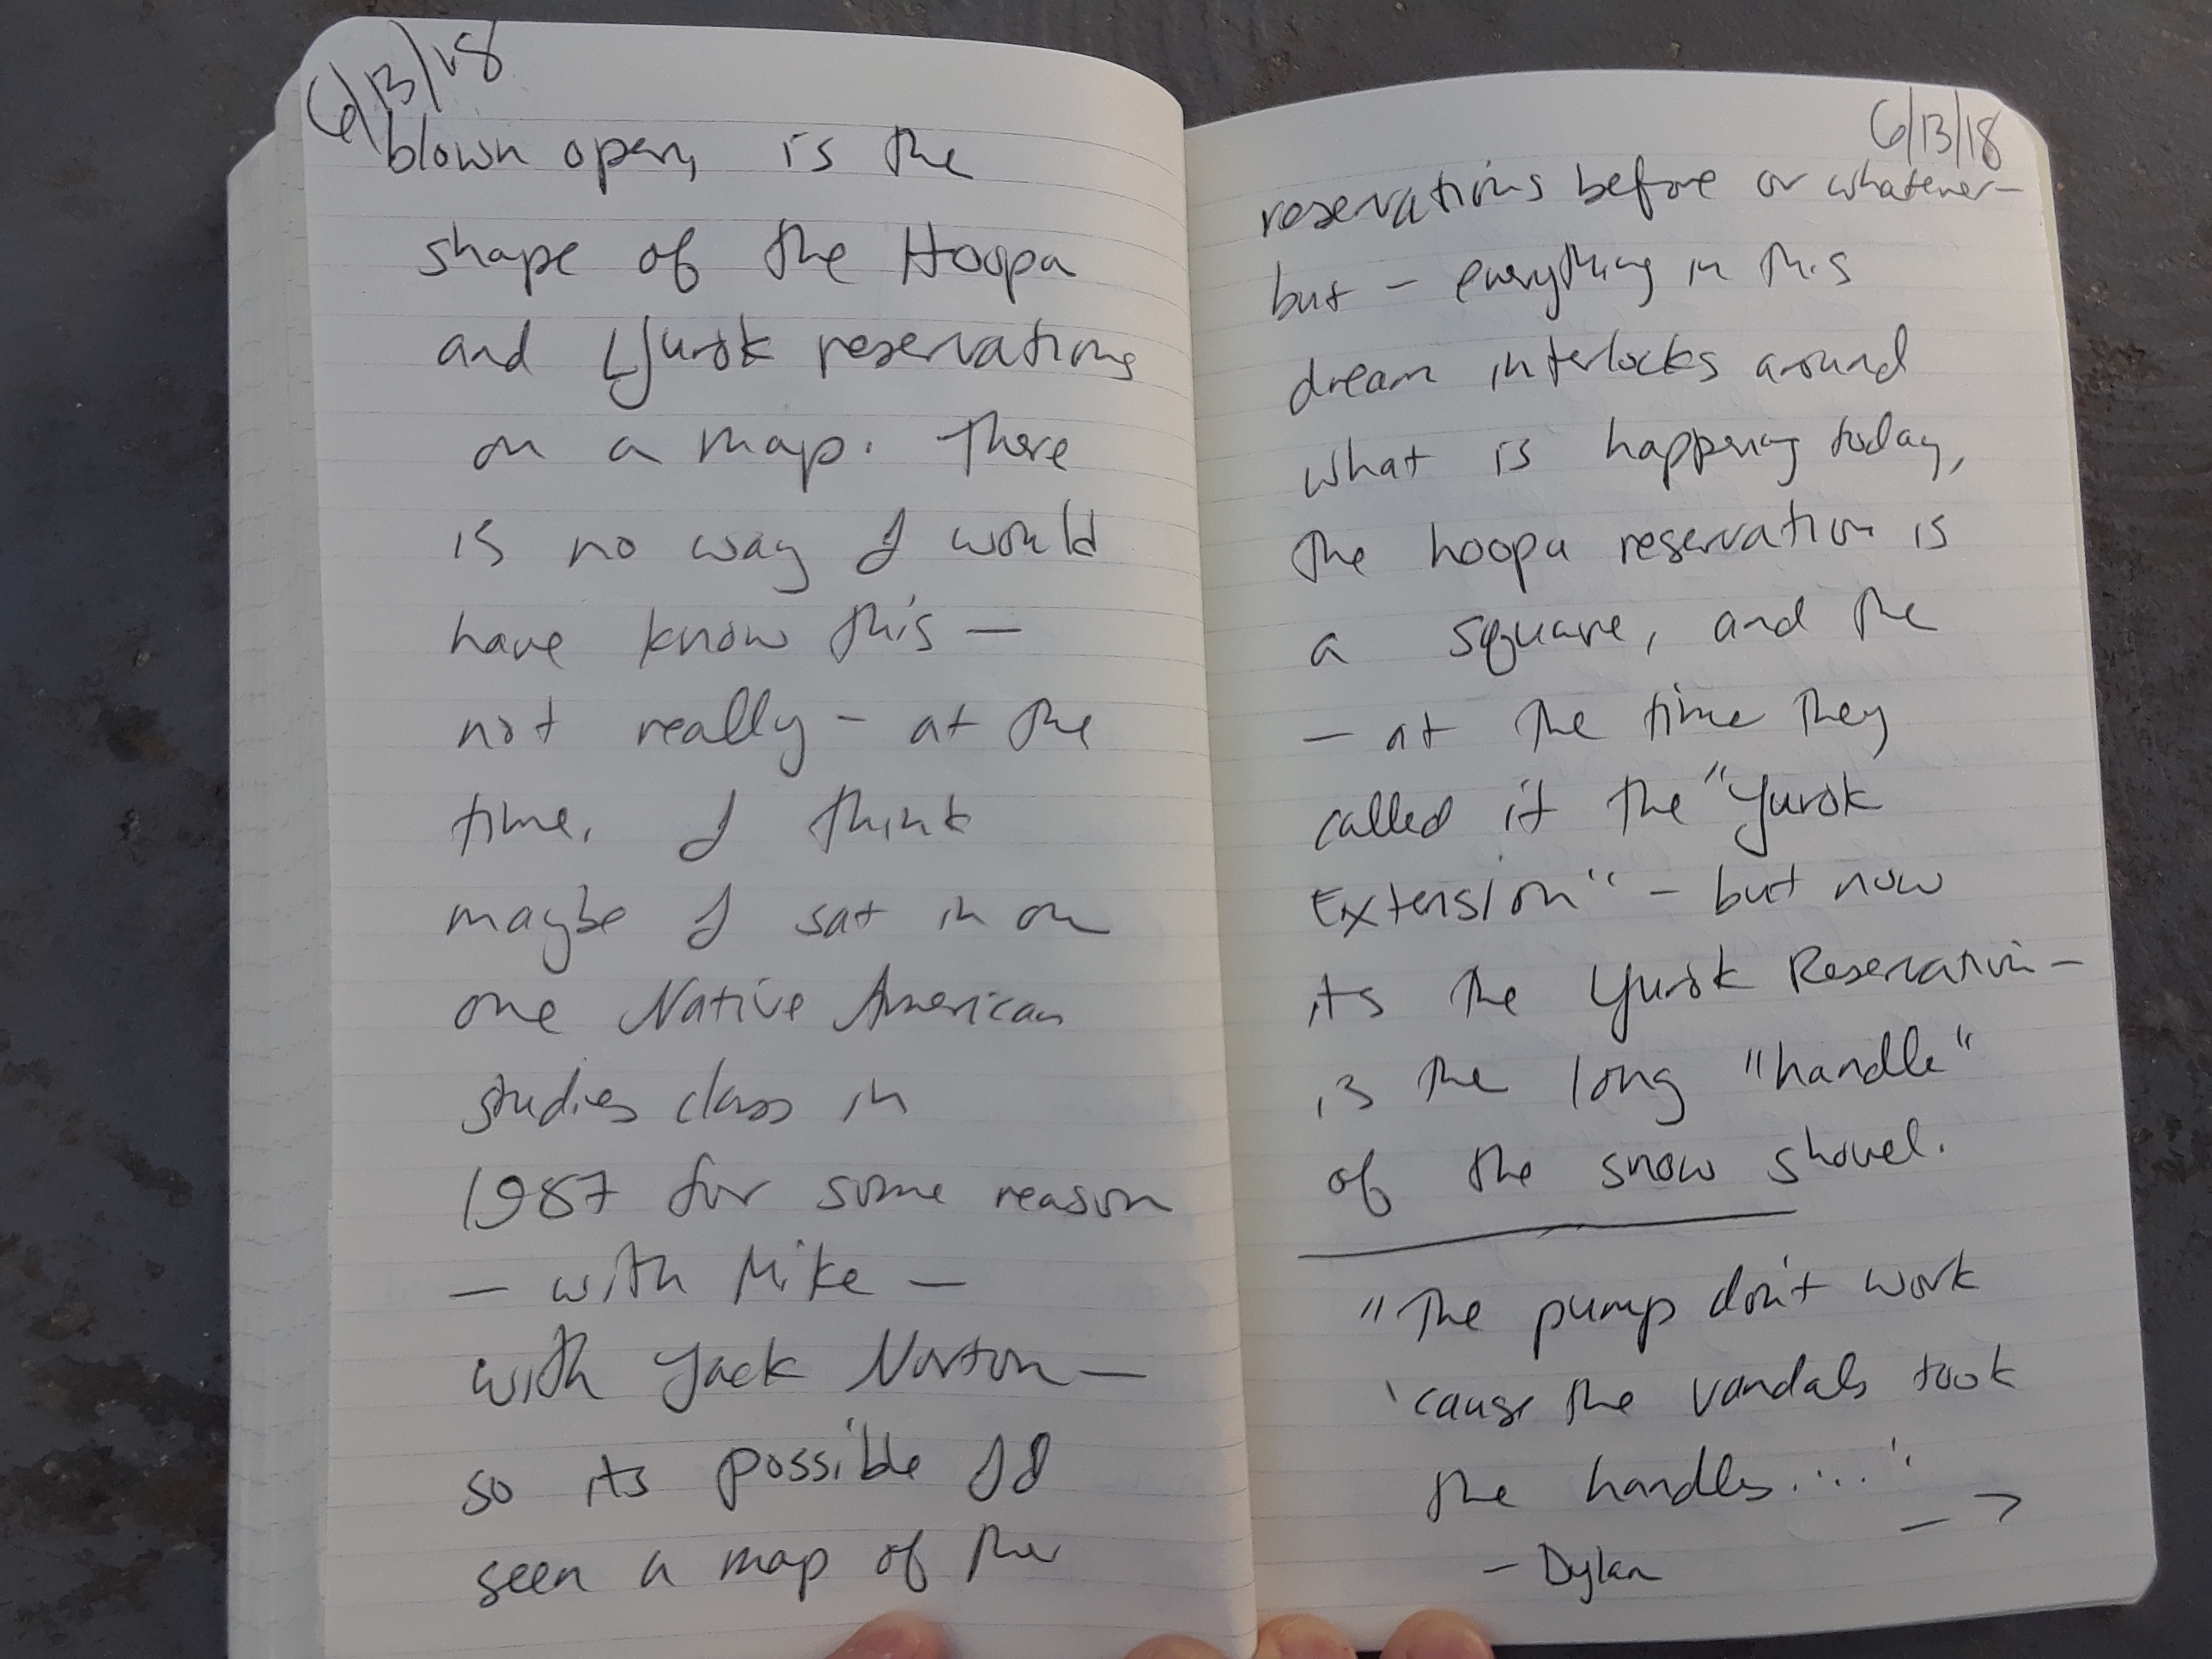 6/13/18
blown open, is the
shape of the Hoopa
and Yurok reservations
on a map. There
is no way I would
have know this —
not really – at the
time. I think
maybe I sat in on
one Native American
studies class in
1987 for some reason
— with Mike —
with Jack Norton —
so its possible I'd
seen a map of the
6/13/18
reservations before or whatever –
but – everything in this
dream interlocks around
what is happening today,
the hoopa reservation is
a square, and the
– at the time they
called it the "Yurok
Extension" – but now
its the Yurok Reservation –
is the long "handle"
of the snow shovel.
"The pump don't work
'cause the vandals took
the handles...."
— Dylan